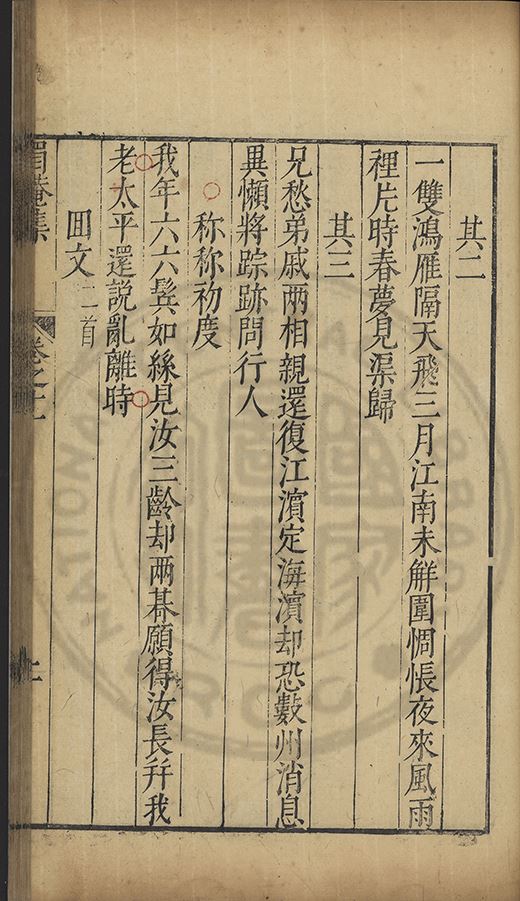 其二
一雙鴻雁隔天飛三月江南未解圍惆悵夜來風雨
裡片時春夢見渠歸
其三
兄愁弟戚兩相親還復江濵定海濵却恐數州消息
異懶將踪跡問行人
称称初度
我年六六鬂如絲見汝三齡却兩朞願得汝長幷我
老太平還說亂離時
囬文二首
卷之十